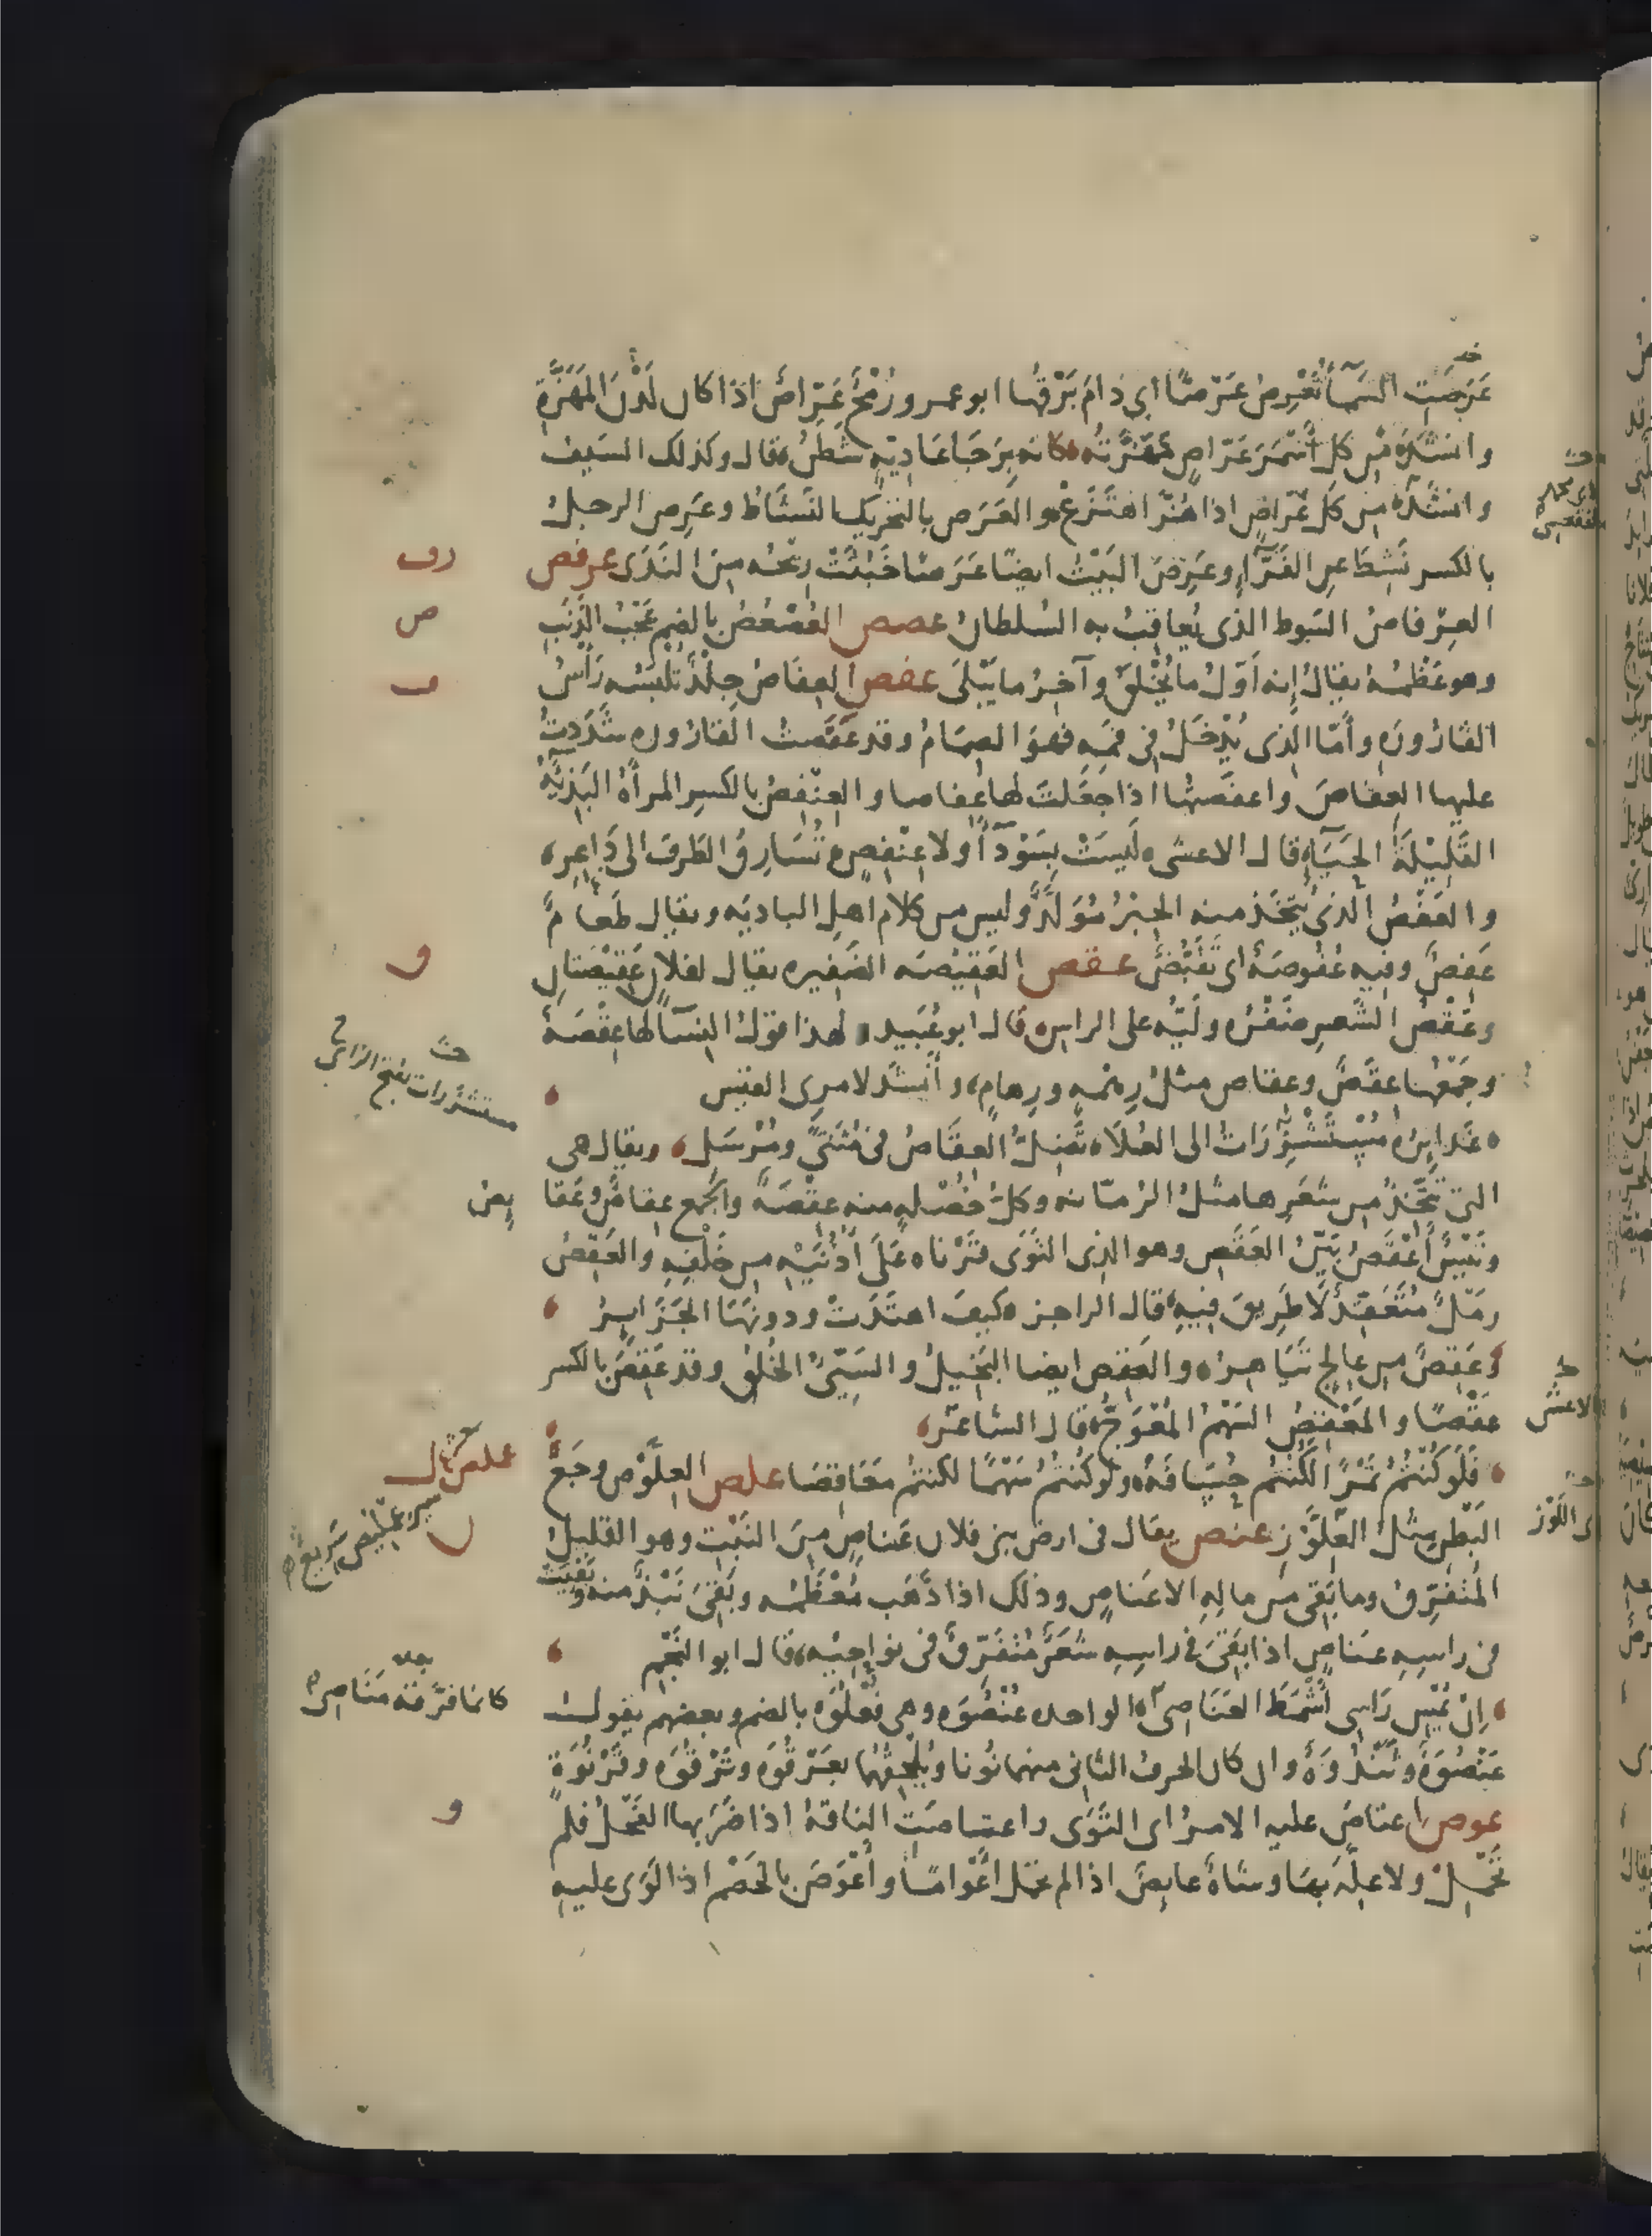 عَرِصَتِ السَّمَآءُ تَعْرِصُ عَرْصًا اى دَامَ بَرْقُها ابو عمرو رُمْحٌ عَرَّاصٌ اذا كان لَدْنَ المَهَزَّةِ
وانشدَ من كل أَسْمَرَ عَرَّاصٍ مَهَزَّتُه كانه بِرَجَا عَادِيَّةٍ شَطَنُ قال وكذلك السيف
وانشدَ من كل عَرَّاصٍ اذا هُزَّ اهْتَزَعْ والعَرَص بالتحريك النَشَاط وعَرِص الرجل
بالكسر نَشِطَ عن الفَرَّاء وعَرِصَ البَيْتُ ايضًا عَرَصًا خَبُثَتْ ريحُه مِن النَدَى عرفص
العِرْفاصُ السَوط الذى يُعاقِبُ به السُلطان عصص العُصْعُصُ بالضم عَجْبُ الذَنَبِ
وهو عَظْمُهُ يقال إنه أوّل ما يُخْلَق وآخِرُ ما يَبْلَى عفص العِفَاصُ جِلْدٌ تُلْبَسُه رَأسُ
القَارُورَةِ وأمّا الذى يُدْخَلُ فى فَمِه فهُوَ الصِمَامُ وقد عَفَصْتُ القارُورة شَدَدتُ
عليها العِفاصَ واعفصتها اذا جَعَلتَ لها عِفاصا والعِنْفِصُ بالكسرِ المرأة البَذِيَّةُ
القَلِيْلَةُ الحَيَآءِ قال الاعشى لَيسَتْ بِسَوْدَآءَ ولا عِنْفِصٍ تُسَارِقُ الطَرْفَ الى دَاعِرِ
والعَفْصُ الذى يُتَّخَذ منه الحِبْرُ مُوَلَّدٌ وليس من كلام اهل الباديه ويقال طَعَامٌ
عَفِصٌ وفيه عُفُوصَةٌ اى تَقَبُّضٌ عقص العَقِيْصَه الضَفِيره يقال لفلان عَقِيْصَتان
وعَقْصُ الشَّعرِ ضَفْرُه ولَيُّه على الراس قال ابو عُبَيد ولهذا قولُ النسآء لها عِقْصَةٌ
وجَمْعُها عِقَصٌ وعقاص مثلُ رِهْمَهٍ ورِهامٍ وأنشد لامرئ القيس
غَدايِرُه مُسْتَشْزِرَاتٌ الى العُلَا تَضِلُّ العِقَاصُ فى مُثَنًّى ومُرْسَلِ ويقال هى
التى تُتَّخَذُ من شَعَرِها مثلُ الرُمّانه وكلُّ خُصْلهٍ منه عِقْصَةٌ والجمع عِقاصٌ وعَقا يِصُ
وتَيْسٌ أَعْقَصُ بَيِّنُ العَقَص وهو الذى التَوَى قَرْناه عَلَى أُذُنَيْهِ من خَلْفِهِ والعَقِصُ
رمْلٌ مُتَعَقِّدٌ لَا طَرِيقَ فِيهِ قال الراجز كيفَ اهتَدَتْ ودونَها الجَزَايِرُ
وعَقِصٌ من عالج تَيَاهِرُ والعَقِص ايضا البَخِيلُ والسَيِّئُ الخُلُق وقد عَقِصَ بالكسر
عَقَصًا والمِعْقَصُ السَهْمُ المُعْوَجُّ قال الشاعر
فَلَو كُنْتُمُ تَمْرًا لَكُنْتُم حُسَافَةً ولو كُنْتُمُ سَهْمًا لكنتم مَعَاقِصَا علص العِلَّوْص وجَعُ
البَطْنِ مثلُ العِلَّوْزِ عنص يقال فى ارض بنى فلان عَناصٍ مِنَ النَبْتِ وهو القليل
المُتَفَرِّق وما بَقِىَ من مالِهِ الا عَناصٍ وذلك اذا ذَهَب مُعْظَمُه وبَقِىَ نَبْذٌ منه وبَقِيَتْ
فى راسِهِ عَناصٍ اذا بَقِىَ فى راسِهِ شَعَرٌ مُتَفَرِّقٌ فى نواحِيْهِ قال ابو النَجْم
اِنْ يُمْسِ رَاسِى أَشْمَطَ العَنَاصِى الواحده عُنْصُوَه وهى فُعْلُوَه بالضم وبعضهم يقول
عَنْصُوَةٌ وثَنْدُوَةٌ وان كان الحرفُ الثانى منهما نُونا ويُلْحِقُهما بعَرْقُوَه وتَرْقُوَه وقَرْنُوَةٍ
عوص اعتاصَ عليه الامرُ اى التَوَى واعتاصَتِ الناقةُ اذا ضَرَبها الفَحْلُ فلم
تَحْمِلْ ولا عِلَّةَ بها وشاةٌ عايِصٌ اذا لم تحمل اَعْوَامًا وأَعْوَصَ بالخَصْم اذا لَوَى عليه
مستشزرات بفتح الزاى
كانما فرّقه مناصى
الاعشى